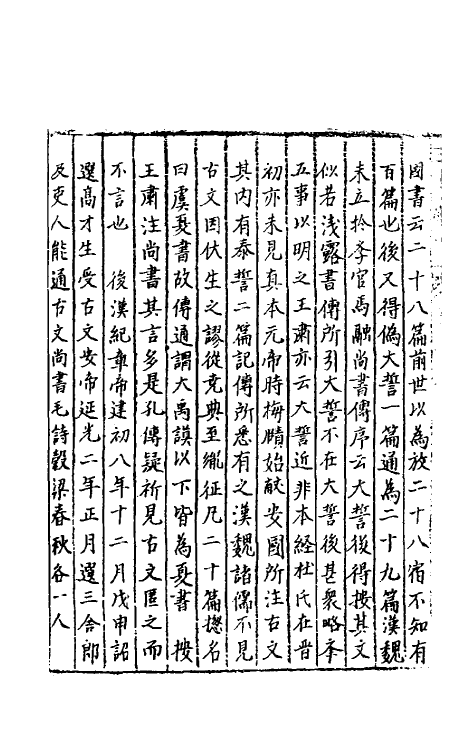 因書云二十八篇前世以為放二十八宿不知有
百篇也後又得偽大誓一篇通為二十九篇漢魏
未立扵學官馬融尚書傳序云大誓後得按其文
似若淺露書傳所引大誓不在大誓後甚衆略舉
五事以明之王肅亦云大誓近非本經杜氏在晋
初亦未見真本元帝時梅賾始獻安國所注古文
其内有泰誓二篇記傳所悉有之漢魏諸儒不見
古文因伏生之謬從堯典至㣧征凡二十篇揔名
曰虞夏書故傳通謂大禹謨以下皆為夏書　按
王肅注尚書其言多是孔傳疑祈見古文匿之而
不言也　後漢紀章帝建初八年十二月戊申詔
選髙才生受古文安帝延光二年正月選三舍郎
及吏人能通古文尚書毛詩穀梁春秋各一人